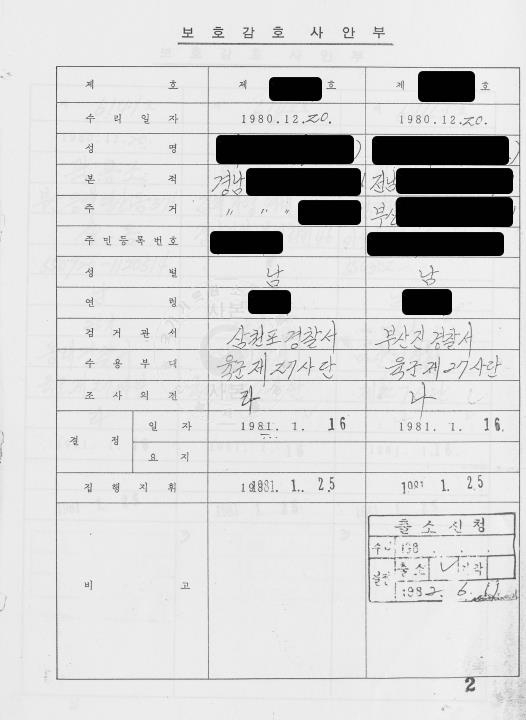 보호감호 사안부
제 호 제 호 제 호
수리일자 1980.12.20. 1980.12.20.
성 명
본 적 경남 전남
주 거 〃 〃 〃 부산
주민등록번호
성 별 남 남
연 령
검거관서 삼천포경찰서 부산진경찰서
수용부대 육군제27사단 육군제27사단
조사의견 라 나
결 정 일 자 1981. 1. 16 1981. 1. 16.
요 지
집행지휘 1981. 1. 25 1981 1. 25
비 고
출소신청
수리 198 . . .
출소 기각
1982. 6. 11
2